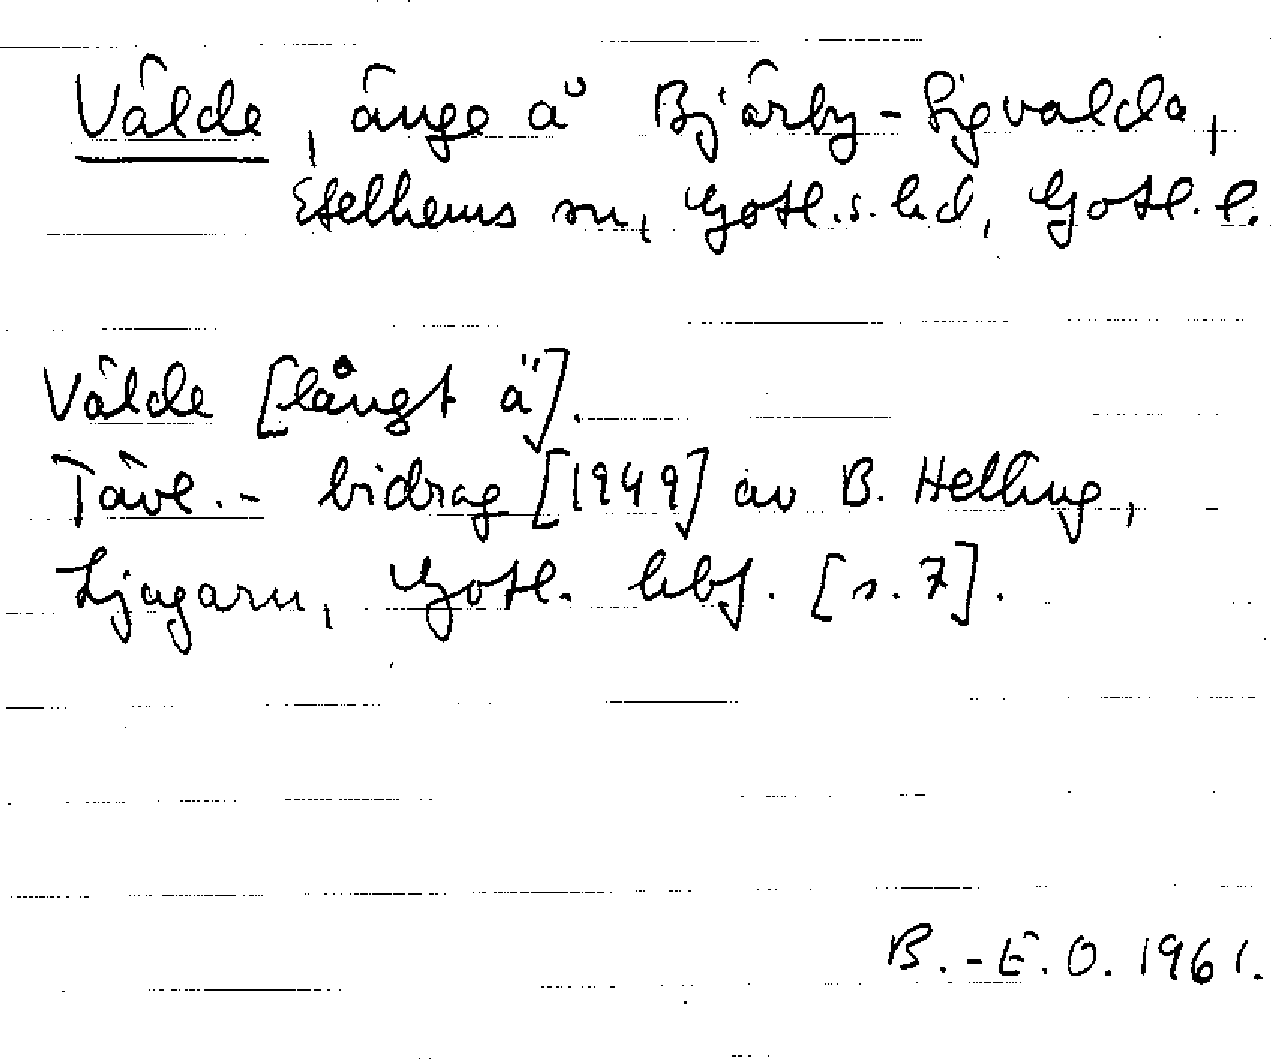 Välde, änge å Bjärby-Sigvalda,
Etelhems sn, Gotl.s. hd, Gotl. l.
Välde [långt ä].
Tävl.- bidrag [1949] av B. Helling,
Ljugarn, Gotl. hbf. [s. 7].
B.-E.O. 1961.